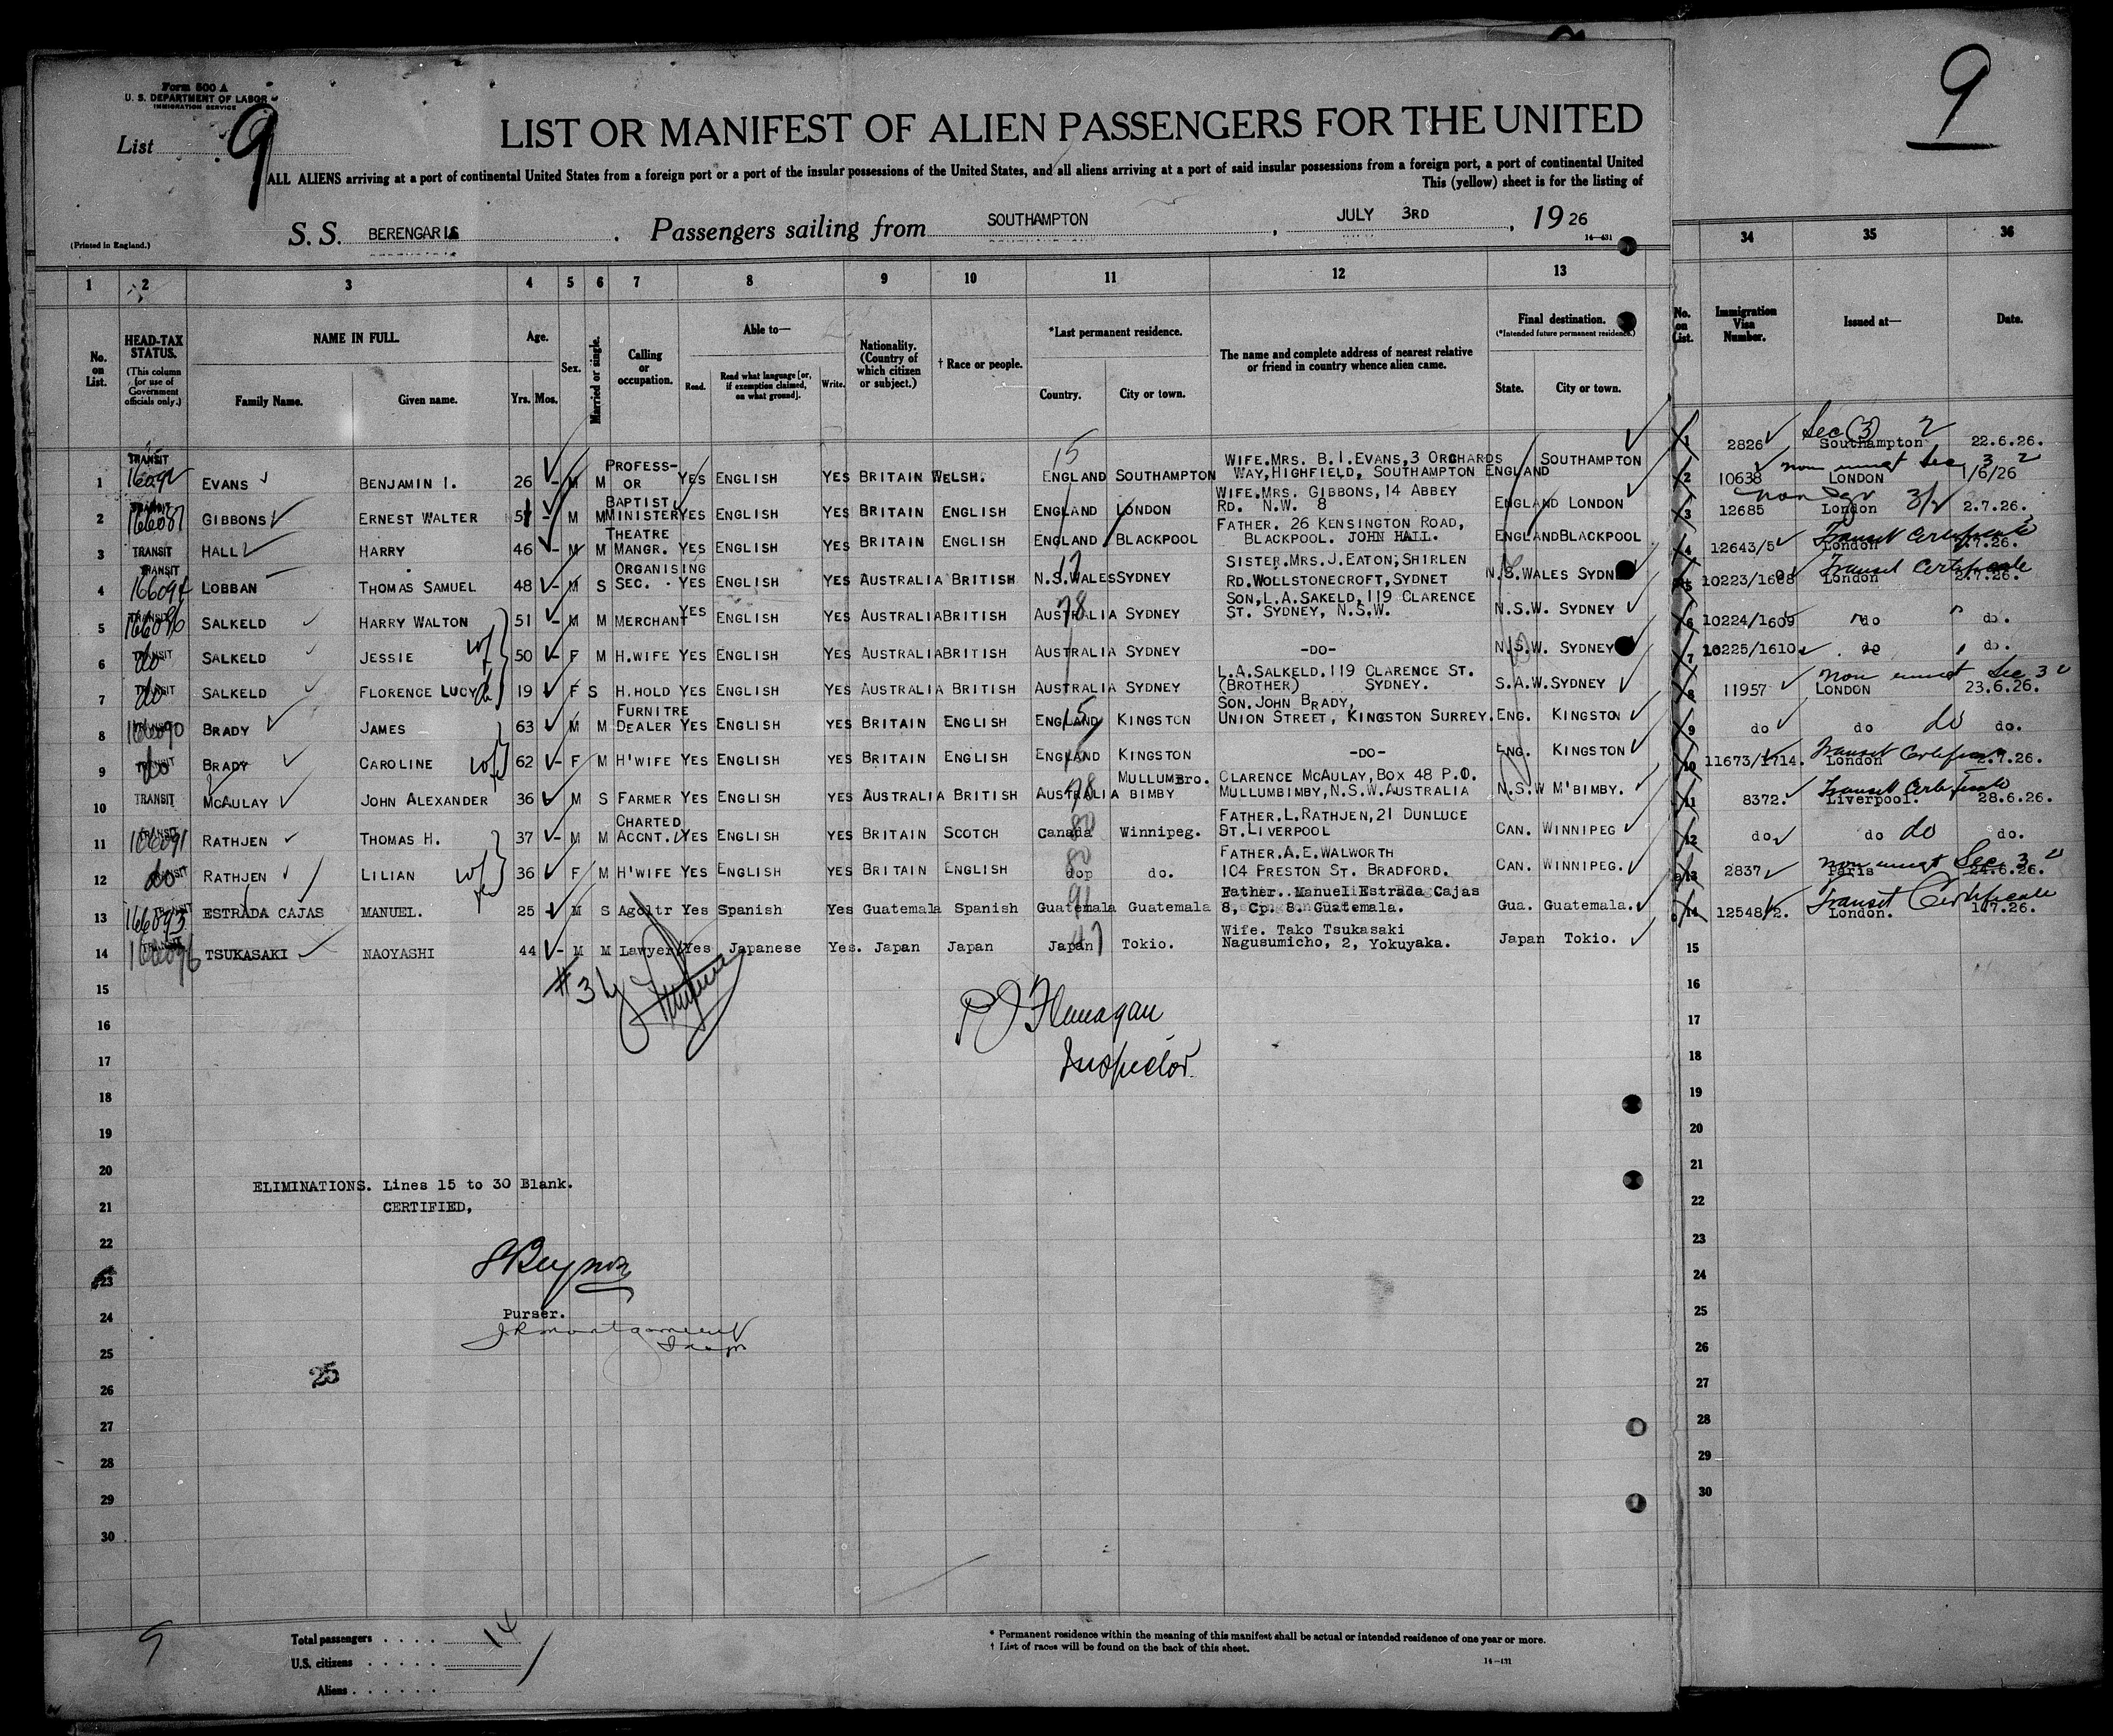 Form 500 A
U. S. DEPARTMENT OF LABOR
IMMIGRATION SERVICE
List 9
9
LIST OR MANIFEST OF ALIEN PASSENGERS FOR THE UNITED
ALL ALIENS arriving at a port of continental United States from a foreign port or a port of the insular possessions of the United States, and all aliens arriving at a port of said insular possessions from a foreign port, a port of continental United
This (yellow) sheet is for the listing of
(Printed in England.)
S. S. BERENGARIA . Passengers sailing from SOUTHAMPTON , JULY 3RD , 19 26
14—431
1 2 3 4 5 6 7 8 9 10 11 12 13
34 35 36
No. on List.
HEAD-TAX STATUS.
(This column for use of Government officials only.)
NAME IN FULL.
Family Name. Given name.
Age.
Yrs. Mos.
Sex.
Married or single.
Calling or occupation.
Able to—
Read. Read what language [or, if exemption claimed, on what ground]. Write.
Nationality. (Country of which citizen or subject.)
† Race or people.
*Last permanent residence.
Country. City or town.
The name and complete address of nearest relative or friend in country whence alien came.
Final destination.
(*Intended future permanent residence.)
State. City or town.
No. on List.
Immigration Visa Number.
Issued at—
Date.
TRANSIT PROFESS- WIFE.MRS. B.I.EVANS,3 ORCHARDS
1 EVANS BENJAMIN I. 26 - M M OR YES ENGLISH YES BRITAIN WELSH. 15 ENGLAND SOUTHAMPTON WAY,HIGHFIELD, SOUTHAMPTON ENGLAND SOUTHAMPTON
TRANSIT BAPTIST WIFE.MRS. GIBBONS,14 ABBEY
2 166087 GIBBONS ERNEST WALTER 51 - M M MINISTER YES ENGLISH YES BRITAIN ENGLISH ENGLAND LONDON RD. N.W. 8 ENGLAND LONDON
THEATRE FATHER. 26 KENSINGTON ROAD,
3 TRANSIT HALL HARRY 46 - M M MANGR. YES ENGLISH YES BRITAIN ENGLISH ENGLAND BLACKPOOL BLACKPOOL. JOHN HALL. ENGLAND BLACKPOOL
TRANSIT ORGANISING SISTER.MRS.J.EATON,SHIRLEN
4 166094 LOBBAN THOMAS SAMUEL 48 - M S SEC. YES ENGLISH YES AUSTRALIA BRITISH N.S.WALES SYDNEY RD.WOLLSTONECROFT,SYDNET N.S.WALES
SON,L.A.SAKELD,119 CLARENCE
5 TRANSIT SALKELD HARRY WALTON 51 - M M MERCHANT YES ENGLISH YES AUSTRALIA BRITISH 78 AUSTRALIA SYDNEY ST. SYDNEY, N.S.W. N.S.W. SYDNEY
6 TRANSIT do SALKELD JESSIE wf 50 - F M H.WIFE YES ENGLISH YES AUSTRALIA BRITISH AUSTRALIA SYDNEY -DO- N.S.W. SYDNEY
L.A.SALKELD.119 CLARENCE ST.
7 TRANSIT do SALKELD FLORENCE LUCY 19 F S H.HOLD YES ENGLISH YES AUSTRALIA BRITISH AUSTRALIA SYDNEY (BROTHER) SYDNEY. S.A.W. SYDNEY
FURNITRE SON.JOHN BRADY,
8 166090 BRADY JAMES 63 M M DEALER YES ENGLISH YES BRITAIN ENGLISH 15 ENGLAND KINGSTON UNION STREET, KINGSTON SURREY. ENG. KINGSTON
9 do BRADY CAROLINE wf 62 - F M H'WIFE YES ENGLISH YES BRITAIN ENGLISH ENGLAND KINGSTON -DO- ENG. KINGSTON
MULLUM BRO. CLARENCE MCAULAY,BOX 48 P.O.
10 TRANSIT MCAULAY JOHN ALEXANDER 36 M S FARMER YES ENGLISH YES AUSTRALIA BRITISH 78 AUSTRALIA BIMBY MULLUMBIMBY,N.S.W.AUSTRALIA N.S.W M'BIMBY.
CHARTED FATHER.L.RATHJEN,21 DUNLUCE
11 TRANSIT RATHJEN THOMAS H. 37 - M M ACCNT. YES ENGLISH YES BRITAIN SCOTCH 80 Canada Winnipeg. ST.LIVERPOOL CAN. WINNIPEG
FATHER.A.E.WALWORTH
12 TRANSIT do RATHJEN LILIAN wf 36 F M H'WIFE YES ENGLISH YES BRITAIN ENGLISH 80 do. 104 PRESTON ST. BRADFORD. CAN. WINNIPEG.
Father. Manuel Estrada Cajas
13 TRANSIT 166093 ESTRADA CAJAS MANUEL. 25 M S Agcltr Yes Spanish Yes Guatemala Spanish 91 Guatemala Guatemala 8, Cp. 8. Guatemala. Gua. Guatemala.
Wife. Tako Tsukasaki
14 TRANSIT TSUKASAKI NAOYASHI 44 - M M Lawyer Yes Japanese Yes. Japan Japan 47 Japan Tokio. Nagusumicho, 2, Yokuyaka. Japan Tokio.
15
16
17
18
19
20
21
22
23
24
25
26
27
28
29
30
P J Flanagan
Inspector
ELIMINATIONS. Lines 15 to 30 Blank.
CERTIFIED,
Purser.
25
Total passengers . . . . 14
U.S. citizens . . . . .
Aliens . . . . . .
9
* Permanent residence within the meaning of this manifest shall be actual or intended residence of one year or more.
† List of races will be found on the back of this sheet.
14—431
9
Sec (3) 2
1 2826 Southampton 22.6.26.
non immgt Sec 3 2
2 10638 LONDON 1/6/26
3/2
3 12685 London 2.7.26.
Transit Certificate
4 12643/5 London 2.7.26.
Transit Certificate
5 10223/1608 London 2.7.26.
6 10224/1609 do do.
7 10225/1610 do do.
non immgt Sec 3 2
8 11957 LONDON 23.6.26.
9 do do do do.
Transit Certificate
10 11673/1714. London 2.7.26.
Transit Certificate
11 8372. Liverpool. 28.6.26.
12 do do do do.
non immgt Sec 3 2
13 2837 Paris 24.6.26.
Transit Certificate
14 12548/2. London.
15
16
17
18
19
20
21
22
23
24
25
26
27
28
29
30